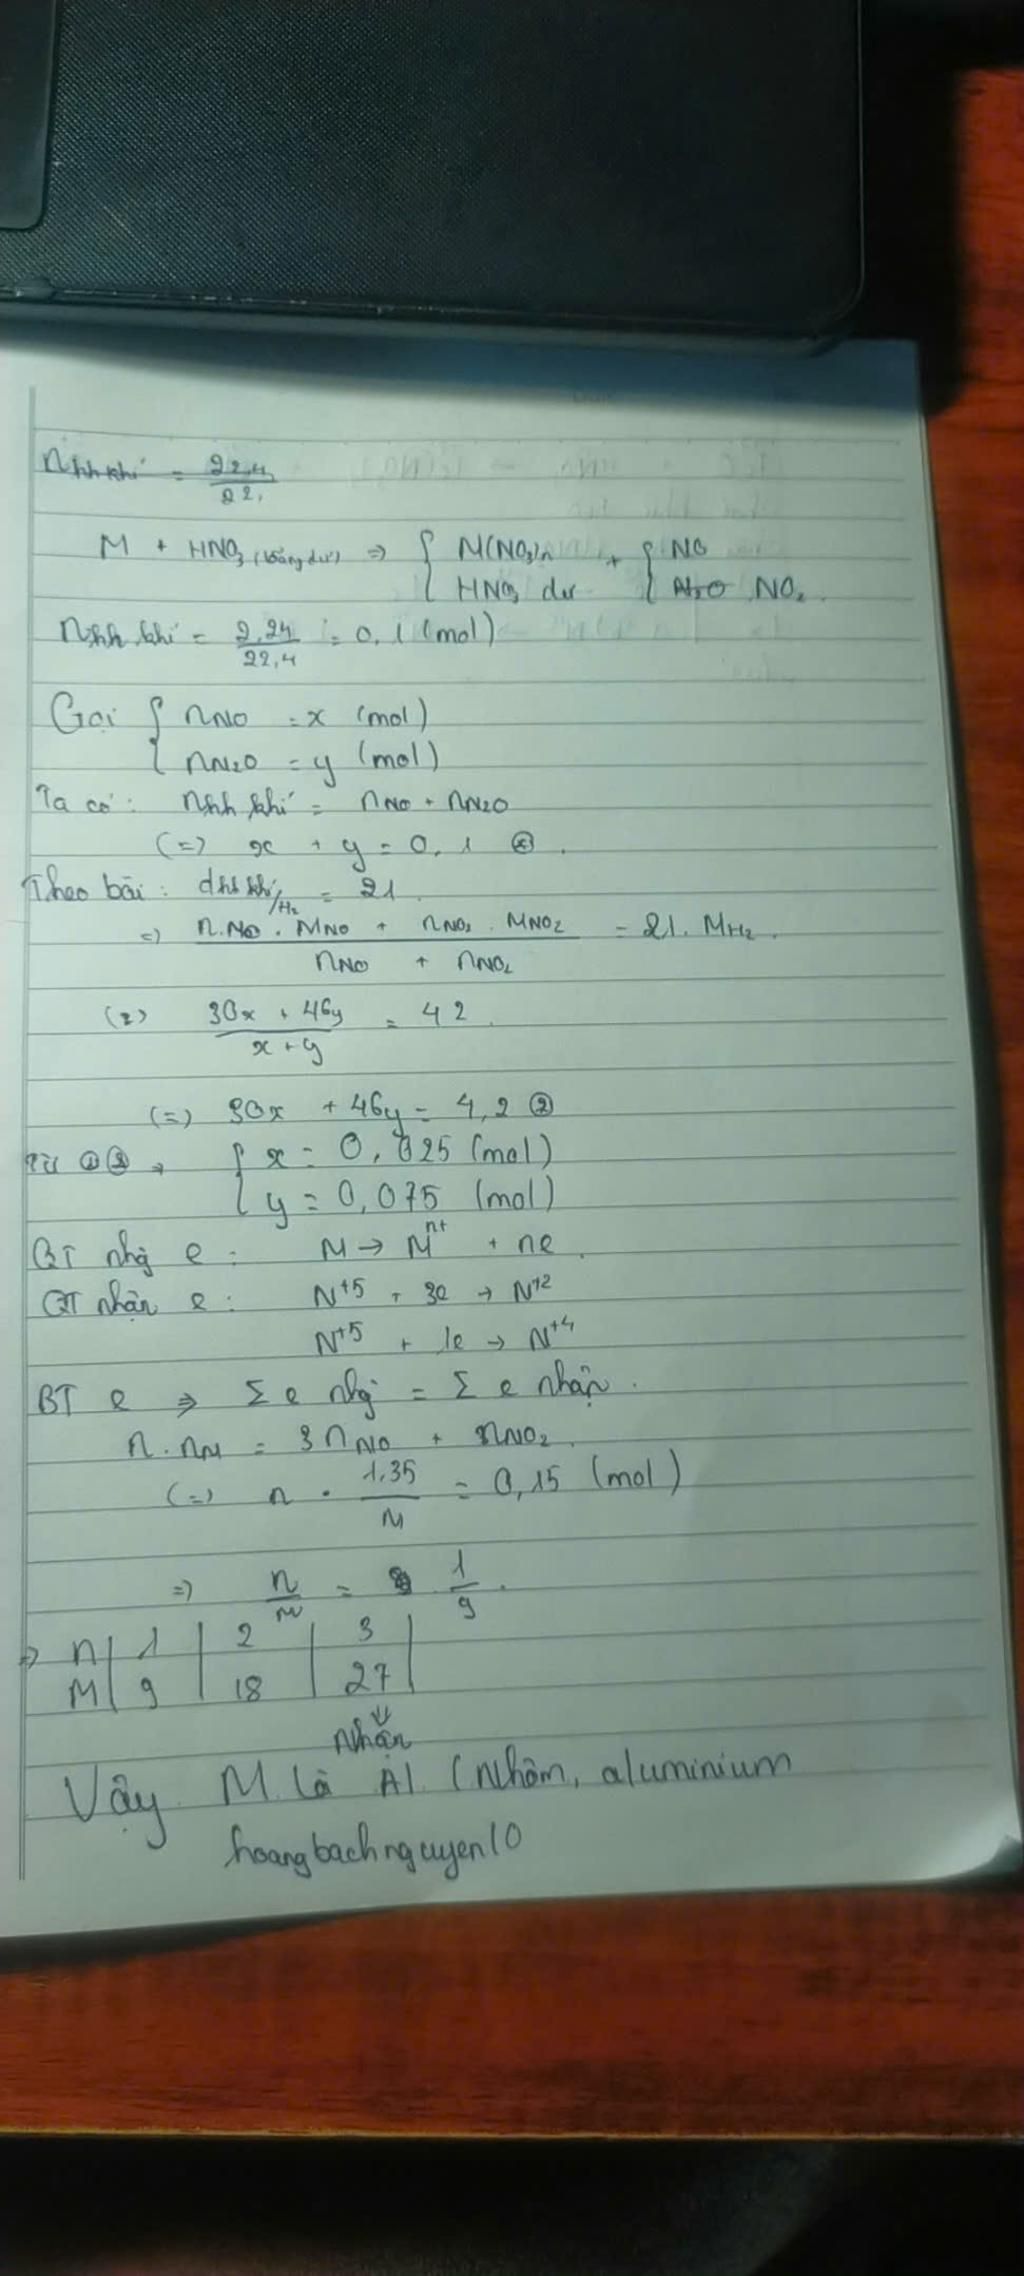 nhh khí = 22,4/22,
M + HNO3 (loãng dư) => { M(NO3)n HNO3 dư + { NO NO2.
nhh khí = 2,24/22,4 = 0,1 (mol)
Gọi { nNO = x (mol)
nN2O = y (mol)
Ta có: nhh khí = nNO + nN2O
(=) x + y = 0,1
Theo bài: dhh khí/H2 = 21
=) (nNO . MNO + nNO2 . MNO2)/(nNO + nNO2) = 21. MH2.
(=) (30x + 46y)/(x + y) = 42.
(=) 30x + 46y = 4,2 ②
Từ ①② => { x = 0,025 (mol)
y = 0,075 (mol)
QT nhg e: M → Mn+ + ne.
QT nhận e: N+5 + 3e → N+2
N+5 + 1e → N+4
BT e => Σ e nhg = Σ e nhận.
n . nM = 3nNO + nNO2.
(=) n . 1,35/M = 0,15 (mol)
=) n/M = 1/9.
=> n | 1 | 2 | 3 |
M | 9 | 18 | 27 |
Nhận
Vậy M là Al (Nhôm, aluminium
hoangbachnguyen10